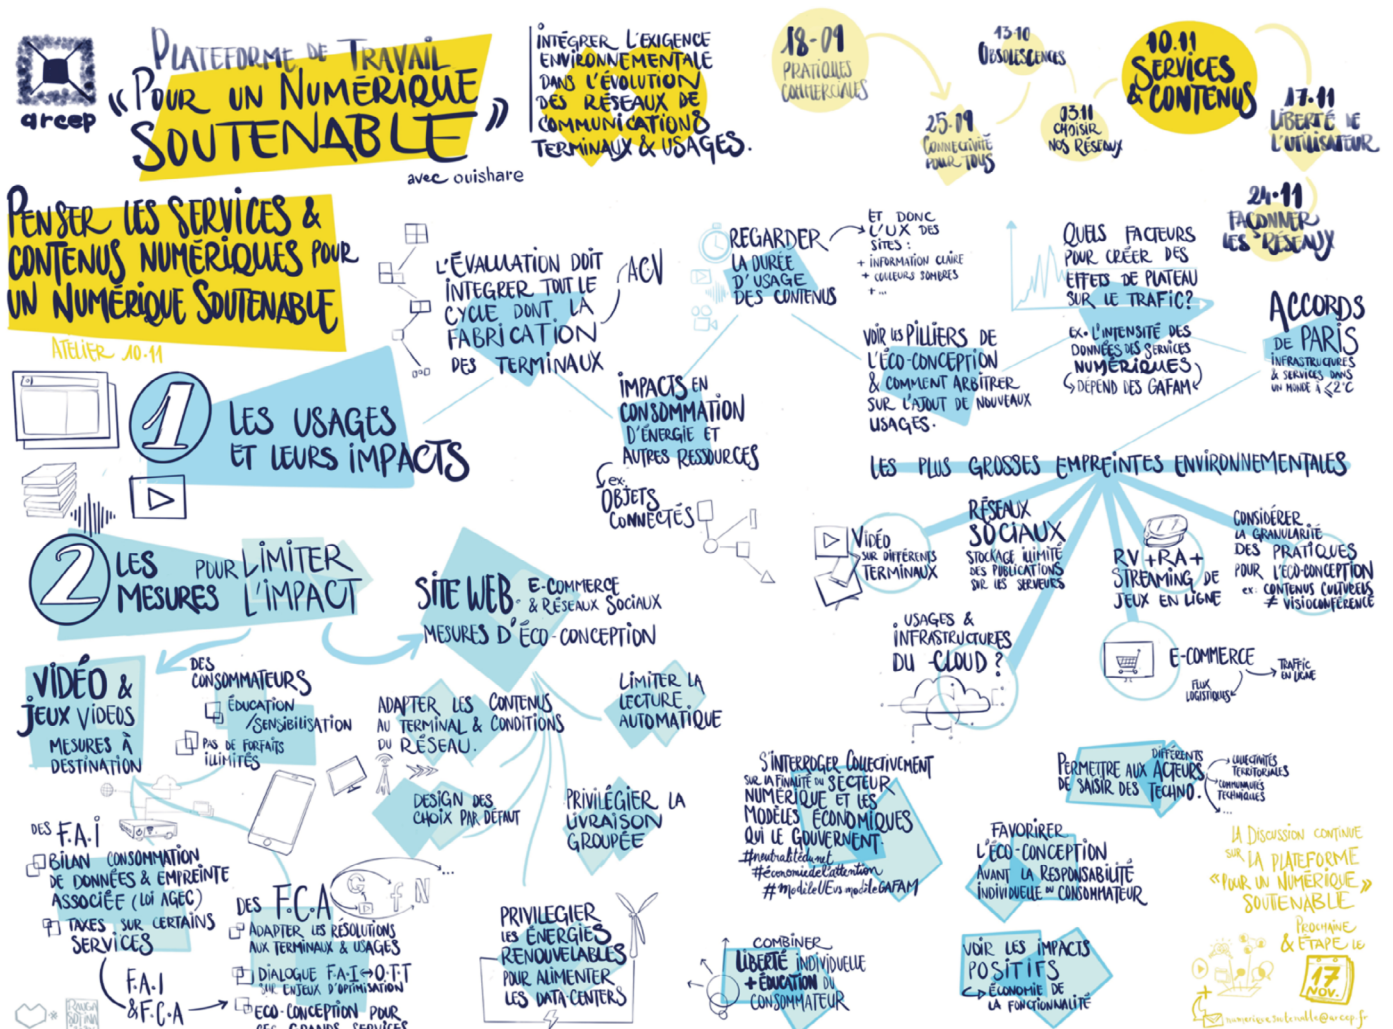 arcep
PLATEFORME DE TRAVAIL
« POUR UN NUMÉRIQUE
SOUTENABLE »
avec ouishare
INTÉGRER L'EXIGENCE
ENVIRONNEMENTALE
DANS L'ÉVOLUTION
DES RÉSEAUX DE
COMMUNICATIONS
TERMINAUX & USAGES.
18-09
PRATIQUES
COMMERCIALES
25.09
CONNECTIVITÉ
POUR TOUS
13-10
OBSOLESCENCES
03.11
CHOISIR
NOS RÉSEAUX
10.11
SERVICES
& CONTENUS
17.11
LIBERTÉ DE
L'UTILISATEUR
24.11
FAÇONNER
LES RÉSEAUX
PENSER LES SERVICES &
CONTENUS NUMÉRIQUES POUR
UN NUMÉRIQUE SOUTENABLE
ATELIER 10.11
1
LES USAGES
ET LEURS IMPACTS
L'ÉVALUATION DOIT
INTÉGRER TOUT LE
CYCLE DONT LA
FABRICATION
DES TERMINAUX
ACV
IMPACTS EN
CONSOMMATION
D'ÉNERGIE ET
AUTRES RESSOURCES
ex:
OBJETS
CONNECTÉS
REGARDER
LA DURÉE
D'USAGE
DES CONTENUS
ET DONC
L'UX DES
SITES :
+ INFORMATION CLAIRE
+ COULEURS SOMBRES
+ ...
VOIR LES PILLIERS DE
L'ÉCO-CONCEPTION
& COMMENT ARBITRER
SUR L'AJOUT DE NOUVEAUX
USAGES.
QUELS FACTEURS
POUR CRÉER DES
EFFETS DE PLATEAU
SUR LE TRAFIC?
EX. L'INTENSITÉ DES
DONNÉES DES SERVICES
NUMÉRIQUES
DÉPEND DES GAFAM
ACCORDS
DE PARIS
INFRASTRUCTURES
& SERVICES DANS
UN MONDE À ≤2°C
LES PLUS GROSSES EMPREINTES ENVIRONNEMENTALES
VIDÉO
SUR DIFFÉRENTS
TERMINAUX
RÉSEAUX
SOCIAUX
STOCKAGE ILLIMITÉ
DES PUBLICATIONS
SUR LES SERVEURS
RV + RA +
STREAMING DE
JEUX EN LIGNE
CONSIDÉRER
LA GRANULARITÉ
DES PRATIQUES
POUR L'ÉCO-CONCEPTION
ex: CONTENUS CULTURELS
≠ VISIOCONFÉRENCE
USAGES &
INFRASTRUCTURES
DU CLOUD ?
E-COMMERCE
TRAFFIC
EN LIGNE
FLUX
LOGISTIQUES
2
LES
MESURES POUR LIMITER
L'IMPACT
SITE WEB. E-COMMERCE
& RÉSEAUX SOCIAUX
MESURES D'ÉCO-CONCEPTION
VIDÉO &
JEUX VIDEOS
MESURES À
DESTINATION
DES
CONSOMMATEURS
ÉDUCATION
/SENSIBILISATION
PAS DE FORFAITS
ILLIMITÉS
ADAPTER LES CONTENUS
AU TERMINAL & CONDITIONS
DU RÉSEAU.
LIMITER LA
LECTURE
AUTOMATIQUE
DESIGN DES
CHOIX PAR DÉFAUT
PRIVILÉGIER LA
LIVRAISON
GROUPÉE
DES F.A.I
BILAN CONSOMMATION
DE DONNÉES & EMPREINTE
ASSOCIÉE (LOI AGEC)
TAXES SUR CERTAINS
SERVICES
F.A.I
& F.C.A
DES F.C.A
G f N ...
ADAPTER LES RÉSOLUTIONS
AUX TERMINAUX & USAGES
DIALOGUE F.A.I ↔ O.T.T
SUR ENJEUX D'OPTIMISATION
ECO-CONCEPTION POUR
DES GRANDS SERVICES
PRIVILEGIER
LES ÉNERGIES
RENOUVELABLES
POUR ALIMENTER
LES DATA-CENTERS
S'INTERROGER COLLECTIVEMENT
SUR LA FINALITÉ DU SECTEUR
NUMÉRIQUE ET LES
MODÈLES ÉCONOMIQUES
QUI LE GOUVERNENT.
#neutralitédunet
#économiedel'attention
#modèleUEvsmodèleGAFAM
COMBINER
LIBERTÉ INDIVIDUELLE
+ ÉDUCATION DU
CONSOMMATEUR
PERMETTRE AUX DIFFÉRENTS ACTEURS
DE SAISIR DES TECHNO.
COLLECTIVITÉS
TERRITORIALES
COMMUNAUTÉS
TECHNIQUES
...
FAVORIRER
L'ÉCO-CONCEPTION
AVANT LA RESPONSABILITÉ
INDIVIDUELLE DU CONSOMMATEUR
VOIR LES IMPACTS
POSITIFS
ÉCONOMIE DE
LA FONCTIONNALITÉ
LA DISCUSSION CONTINUE
SUR LA PLATEFORME
« POUR UN NUMÉRIQUE »
SOUTENABLE
PROCHAINE
& ÉTAPE LE
17
NOV.
numeriquesoutenable@arcep.fr